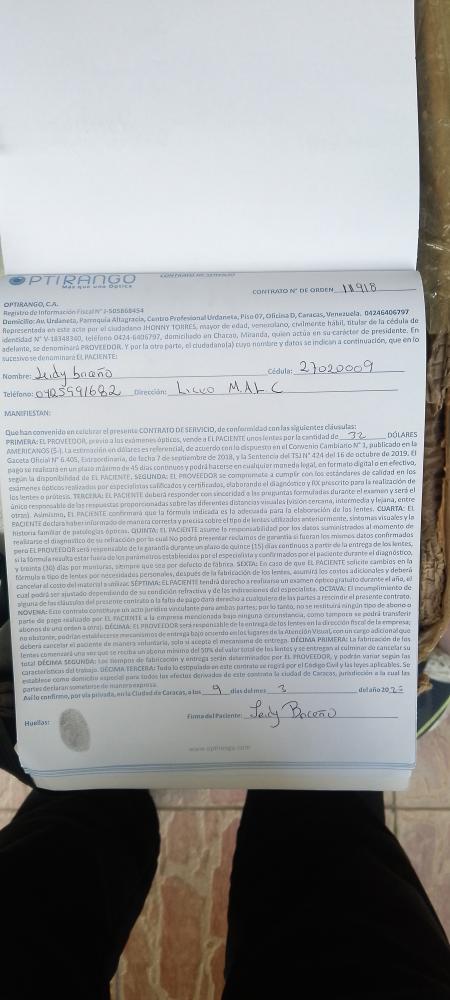 OPTIRANGO
Más que una Óptica
CONTRATO DE SERVICIO
CONTRATO N° DE ORDEN 11918
OPTIRANGO, C.A.
Registro de Información Fiscal N° J-505868454
Domicilio: Av. Urdaneta, Parroquia Altagracia, Centro Profesional Urdaneta, Piso 07, Oficina D, Caracas, Venezuela. 04246406797
Representada en este acto por el ciudadano JHONNY TORRES, mayor de edad, venezolano, civilmente hábil, titular de la cédula de
identidad N° V-18348340, teléfono 0424-6406797, domiciliado en Chacao, Miranda, quien actúa en su carácter de presidente. En
adelante, se denominará PROVEEDOR. Y por la otra parte, el ciudadano(a) cuyo nombre y datos se indican a continuación, que en lo
sucesivo se denominará EL PACIENTE:
Nombre: Leidy briceño Cédula: 27020009
Teléfono: 04125591682 Dirección: Liceo MALC
MANIFIESTAN:
Que han convenido en celebrar el presente CONTRATO DE SERVICIO, de conformidad con las siguientes cláusulas:
PRIMERA: EL PROVEEDOR, previo a los exámenes ópticos, vende a EL PACIENTE unos lentes por la cantidad de 32 DÓLARES
AMERICANOS ($-). La estimación en dólares es referencial, de acuerdo con lo dispuesto en el Convenio Cambiario N° 1, publicado en la
Gaceta Oficial N° 6.405, Extraordinaria, de fecha 7 de septiembre de 2018, y la Sentencia del TSJ N° 424 del 16 de octubre de 2019. El
pago se realizará en un plazo máximo de 45 días continuos y podrá hacerse en cualquier moneda legal, en formato digital o en efectivo,
según la disponibilidad de EL PACIENTE. SEGUNDA: EL PROVEEDOR se compromete a cumplir con los estándares de calidad en los
exámenes ópticos realizados por especialistas calificados y certificados, elaborando el diagnóstico y RX prescrito para la realización de
los lentes o prótesis. TERCERA: EL PACIENTE deberá responder con sinceridad a las preguntas formuladas durante el examen y será el
único responsable de las respuestas proporcionadas sobre las diferentes distancias visuales (visión cercana, intermedia y lejana, entre
otras). Asimismo, EL PACIENTE confirmará que la fórmula indicada es la adecuada para la elaboración de los lentes. CUARTA: EL
PACIENTE declara haber informado de manera correcta y precisa sobre el tipo de lentes utilizados anteriormente, síntomas visuales y la
historia familiar de patologías ópticas. QUINTA: EL PACIENTE asume la responsabilidad por los datos suministrados al momento de
realizarse el diagnóstico de su refracción por lo cual No podrá presentar reclamos de garantía si fueran los mismos datos confirmados
pero EL PROVEEDOR será responsable de la garantía durante un plazo de quince (15) días continuos a partir de la entrega de los lentes,
si la fórmula resulta estar fuera de los parámetros establecidos por el especialista y confirmados por el paciente durante el diagnóstico,
y treinta (30) días por monturas, siempre que sea por defecto de fábrica. SEXTA: En caso de que EL PACIENTE solicite cambios en la
fórmula o tipo de lentes por necesidades personales, después de la fabricación de los lentes, asumirá los costos adicionales y deberá
cancelar el costo del material a utilizar. SÉPTIMA: EL PACIENTE tendrá derecho a realizarse un examen óptico gratuito durante el año, el
cual podrá ser ajustado dependiendo de su condición refractiva y de las indicaciones del especialista. OCTAVA: El incumplimiento de
alguna de las cláusulas del presente contrato o la falta de pago dará derecho a cualquiera de las partes a rescindir el presente contrato.
NOVENA: Este contrato constituye un acto jurídico vinculante para ambas partes; por lo tanto, no se restituirá ningún tipo de abono o
parte de pago realizado por EL PACIENTE a la empresa mencionada bajo ninguna circunstancia, como tampoco se podrá transferir
abonos de una orden a otra. DÉCIMA: EL PROVEEDOR será responsable de la entrega de los lentes en la dirección fiscal de la empresa;
no obstante, podrían establecerse mecanismos de entrega bajo acuerdo en los lugares de la Atención Visual, con un cargo adicional que
deberá cancelar el paciente de manera voluntaria, solo si acepta el mecanismo de entrega. DÉCIMA PRIMERA: La fabricación de los
lentes comenzará una vez que se reciba un abono mínimo del 50% del valor total de los lentes y se entregan al culminar de cancelar su
total DÉCIMA SEGUNDA: Los tiempos de fabricación y entrega serán determinados por EL PROVEEDOR, y podrán variar según las
características del trabajo. DÉCIMA TERCERA: Todo lo estipulado en este contrato se regirá por el Código Civil y las leyes aplicables. Se
establece como domicilio especial para todos los efectos derivados de este contrato la ciudad de Caracas, jurisdicción a la cual las
partes declaran someterse de manera expresa.
Así lo confirmo, por vía privada, en la Ciudad de Caracas, a los 9 días del mes 3 del año 20
Huellas: Firma del Paciente: Leidy Briceño
www.optirango.com